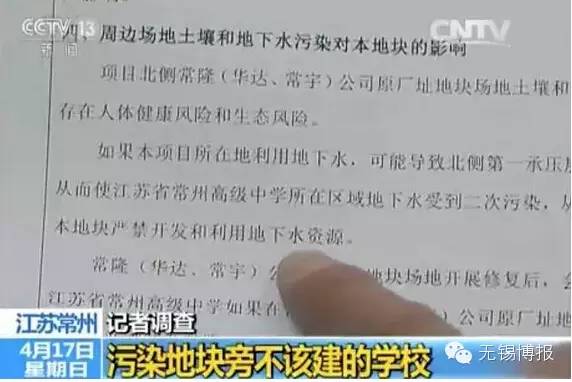 CCTV 13
新闻
CNTV
四、周边场地土壤和地下水污染对本地块的影响
项目北侧常隆(华达、常宇)公司原厂址地块场地土壤和
存在人体健康风险和生态风险。
如果本项目所在地利用地下水,可能导致北侧第一承压层
从而使江苏省常州高级中学所在区域地下水受到二次污染,从
本地块严禁开发和利用地下水资源。
常隆(华达、常宇)公 地块场地开展修复后,会
江苏省常州高级中学如果在
江苏常州
记者调查
4月17日
星期日
污染地块旁不该建的学校
无锡博报